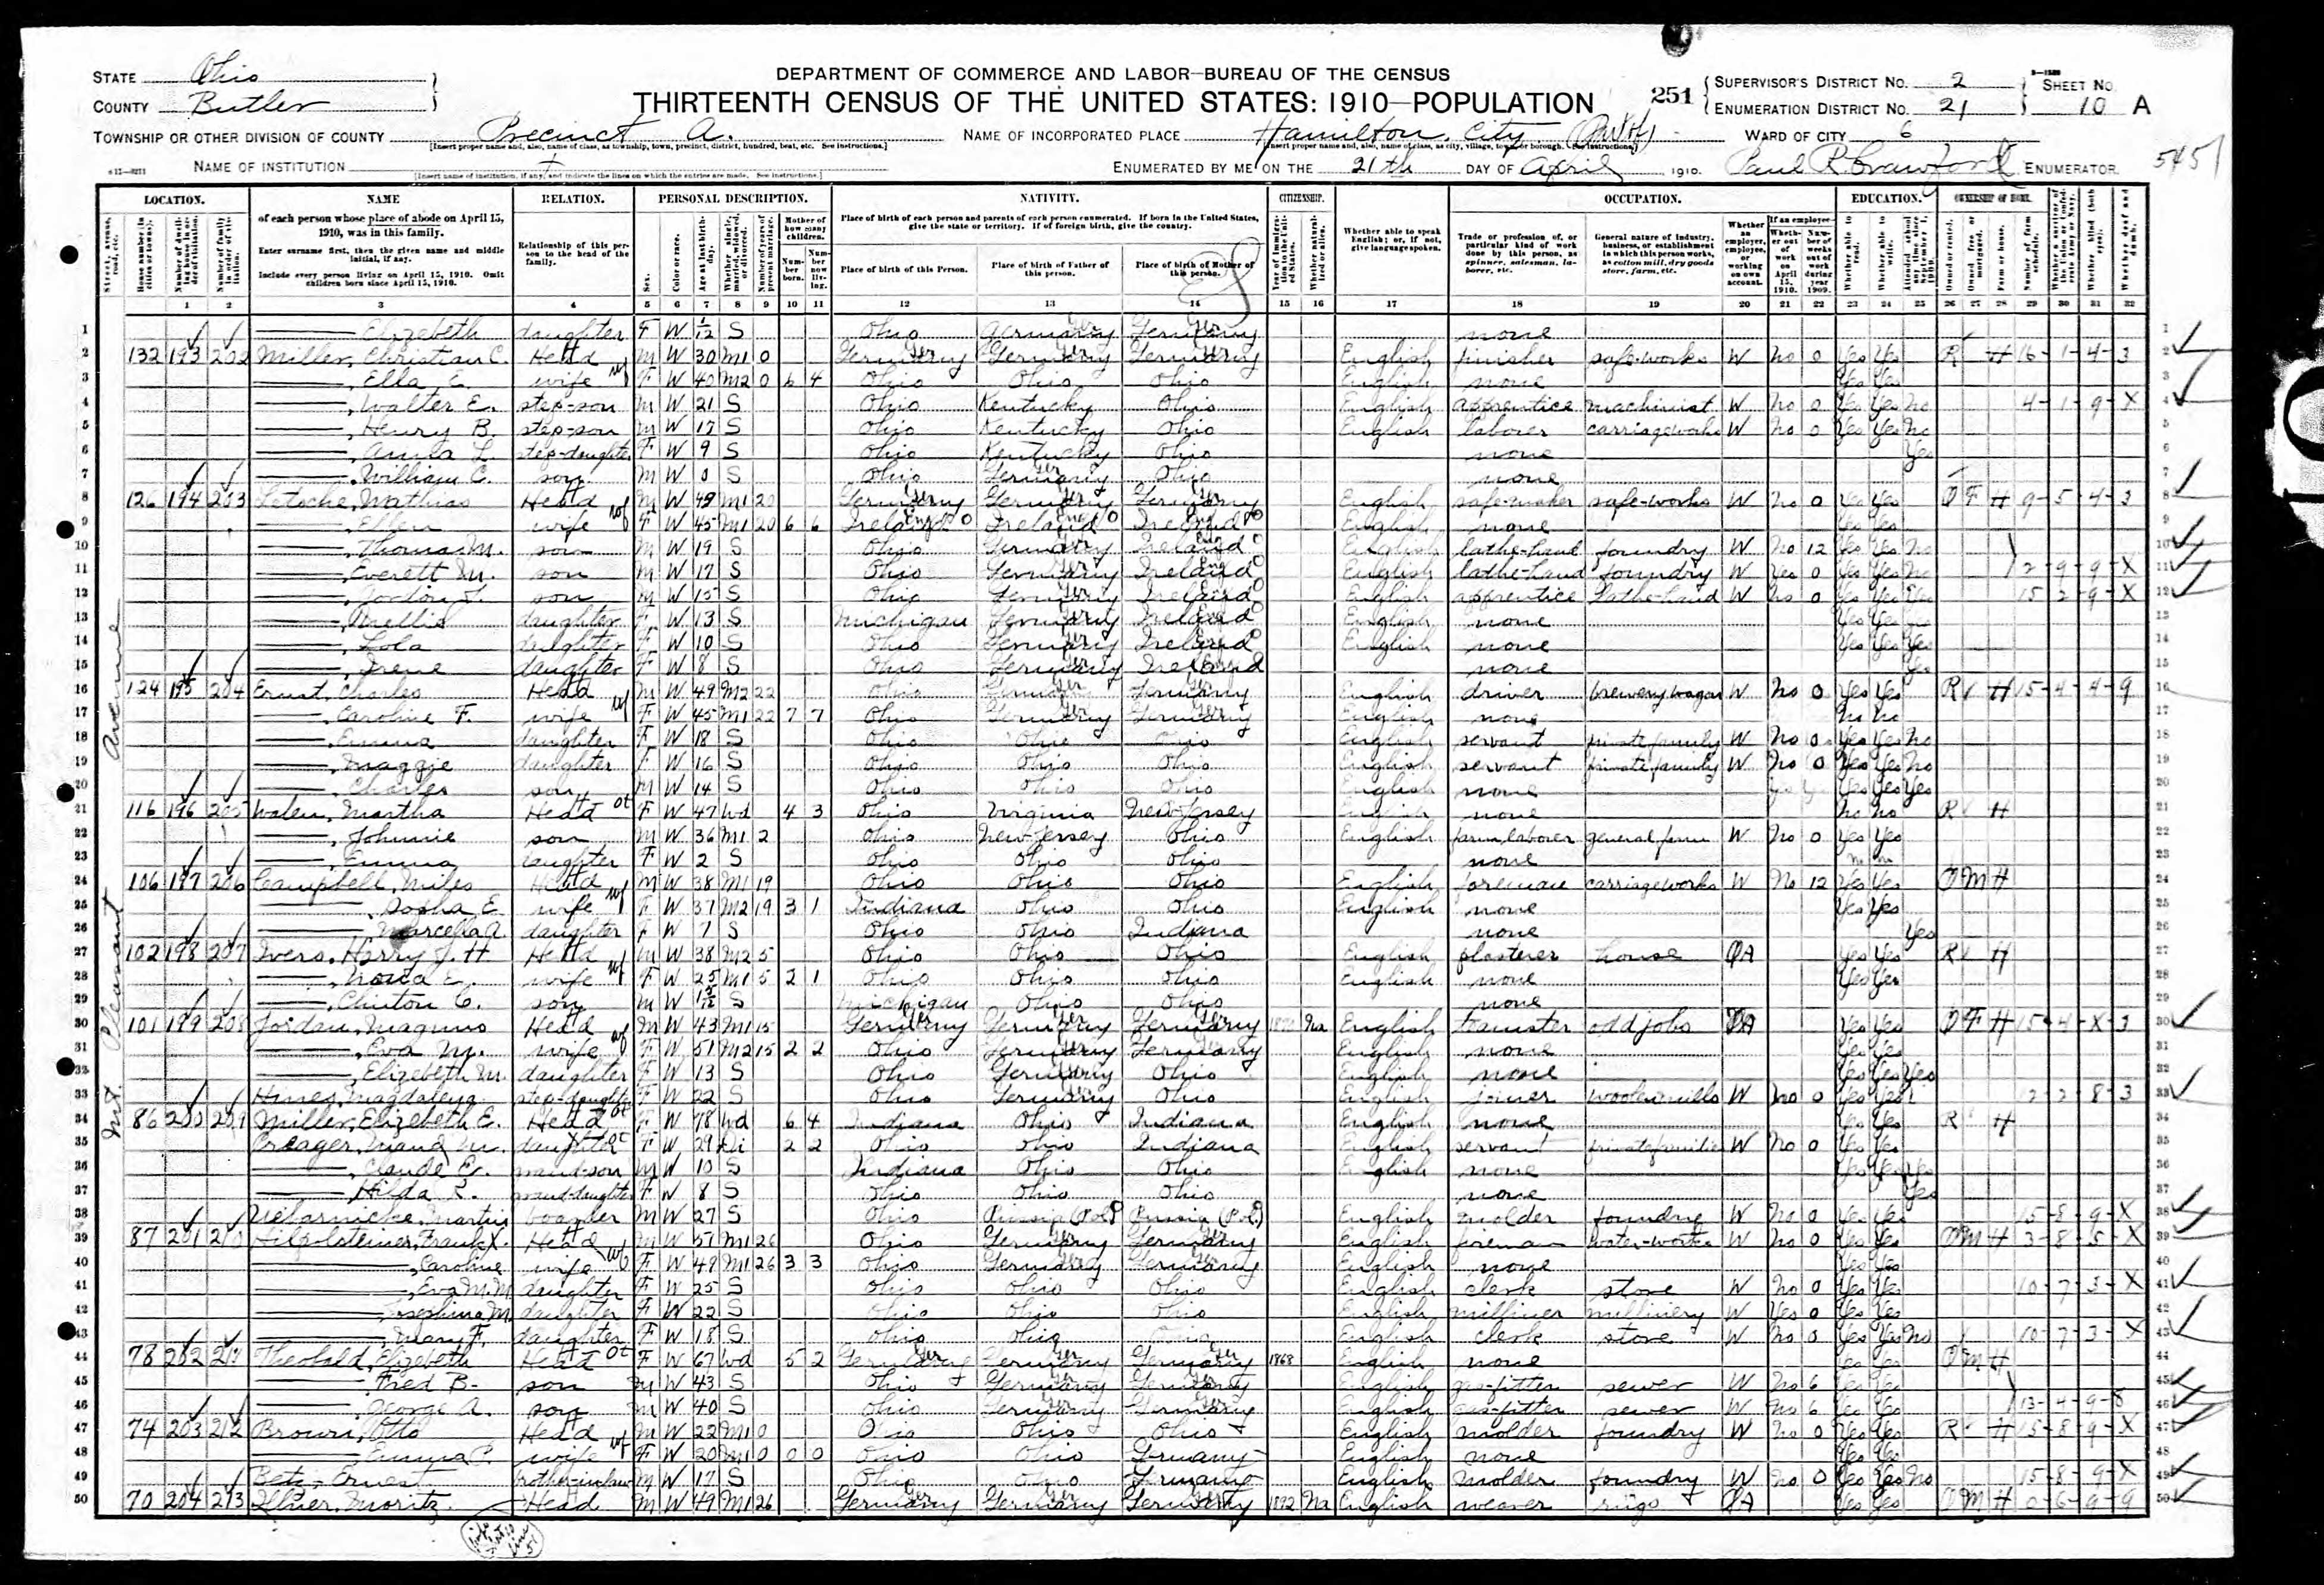 STATE Ohio
COUNTY Butler
DEPARTMENT OF COMMERCE AND LABOR—BUREAU OF THE CENSUS
THIRTEENTH CENSUS OF THE UNITED STATES: 1910—POPULATION
251
SUPERVISOR'S DISTRICT No. 2
ENUMERATION DISTRICT No. 21
SHEET No. 10 A
TOWNSHIP OR OTHER DIVISION OF COUNTY Precinct A.
NAME OF INCORPORATED PLACE Hamilton City (Part of)
WARD OF CITY 6
5451
NAME OF INSTITUTION
ENUMERATED BY ME ON THE 21th DAY OF April, 1910. Paul R. Crawford ENUMERATOR.
LOCATION. NAME RELATION. PERSONAL DESCRIPTION. NATIVITY. CITIZENSHIP. OCCUPATION. EDUCATION. OWNERSHIP OF HOME.
of each person whose place of abode on April 15, 1910, was in this family.
Enter surname first, then the given name and middle initial, if any.
Include every person living on April 15, 1910. Omit children born since April 15, 1910.
Relationship of this person to the head of the family.
Place of birth of each person and parents of each person enumerated. If born in the United States, give the state or territory. If of foreign birth, give the country.
Place of birth of this Person. Place of birth of Father of this person. Place of birth of Mother of this person.
Whether able to speak English; or, if not, give language spoken.
Trade or profession of, or particular kind of work done by this person, as spinner, salesman, laborer, etc.
General nature of industry, business, or establishment in which this person works, as cotton mill, dry goods store, farm, etc.
Mt. Pleasant Avenue
1 Elizabeth daughter F W 1/12 S Ohio Germany Germany none
2 132 193 202 Miller, Christian C. Head M W 30 M1 0 Germany Germany Germany English finisher safe-works W No 0 Yes Yes R H 16-1-4-3
3 , Ella E. wife F W 40 M2 0 6 4 Ohio Ohio Ohio English none Yes Yes
4 , Walter E. step-son M W 21 S Ohio Kentucky Ohio English apprentice machinist W No 0 Yes Yes No 4-1-9-X
5 , Henry B. step-son M W 17 S Ohio Kentucky Ohio English laborer carriage works W No 0 Yes Yes No
6 step-daughter F W 9 S Ohio Kentucky Ohio none Yes
7 , William C. son M W 0 S Ohio Germany Ohio none
8 126 194 203 Letsche, Mathias Head M W 49 M1 20 Germany Germany Germany English safe-maker safe-works W No 0 Yes Yes O F H 9-5-4-3
9 , Ellen wife F W 45 M1 20 6 6 Ireland Ireland Ireland English none Yes Yes
10 , Thomas M. son M W 19 S Ohio Germany Ireland English lathe-hand foundry W No 12 Yes Yes No
11 , Everett M. son M W 17 S Ohio Germany Ireland English lathe-hand foundry W Yes 0 Yes Yes No 2-9-9-X
12 son M W 15 S Ohio Germany Ireland English apprentice lathe-hand W No 0 Yes Yes Yes 15-2-9-X
13 , Nellie daughter F W 13 S Michigan Germany Ireland English none Yes Yes Yes
14 , Lola daughter F W 10 S Ohio Germany Ireland English none Yes Yes Yes
15 , Irene daughter F W 8 S Ohio Germany Ireland none Yes
16 124 195 204 Ernst, Charles Head M W 49 M2 22 Ohio Germany Germany English driver brewery wagon W No 0 Yes Yes R H 15-4-4-9
17 , Caroline F. wife F W 45 M1 22 7 7 Ohio Germany Germany English none No No
18 , Emma daughter F W 18 S Ohio Ohio Ohio English servant private family W No 0 Yes Yes No
19 , Maggie daughter F W 16 S Ohio Ohio Ohio English servant private family W No 0 Yes Yes No
20 , Charles son M W 14 S Ohio Ohio Ohio English none Yes Yes Yes
21 116 196 205 Walen, Martha Head F W 47 Wd 4 3 Ohio Virginia New Jersey English none No No R H
22 , Johnnie son M W 36 M1 2 Ohio New Jersey Ohio English farm laborer general farm W No 0 Yes Yes
23 , Emma daughter F W 2 S Ohio Ohio Ohio none
24 106 197 206 Campbell, Miles Head M W 38 M1 19 Ohio Ohio Ohio English foreman carriage works W No 12 Yes Yes O M H
25 , Sopha E. wife F W 37 M2 19 3 1 Indiana Ohio Ohio English none Yes Yes
26 , Marcella A. daughter F W 7 S Ohio Ohio Indiana none Yes
27 102 198 207 Ivers, Harry J. H Head M W 38 M2 5 Ohio Ohio Ohio English plasterer house OA Yes Yes R H
28 , Nova E. wife F W 25 M1 5 2 1 Ohio Ohio Ohio English none Yes Yes
29 , Clinton C. son M W S Michigan Ohio Ohio none
30 101 199 208 Jordan, Magnus Head M W 43 M1 15 Germany Germany Germany Na English teamster odd jobs OA Yes Yes O F H 15-4-X-3
31 , Eva M. wife F W 51 M2 15 2 2 Ohio Germany Germany English none Yes Yes
32 , Elizabeth M. daughter F W 13 S Ohio Germany Ohio English none Yes Yes Yes
33 Hines, Magdalena step-daughter F W 22 S Ohio Germany Ohio English joiner woolen mills W No 0 Yes Yes 2-2-8-3
34 86 200 209 Miller, Elizabeth E. Head F W 78 Wd 6 4 Indiana Ohio Indiana English none Yes Yes R H
35 Creager, Maud M. daughter F W 29 Di 2 2 Ohio Ohio Indiana English servant private families W No 0 Yes Yes
36 , Claude E. grand-son M W 10 S Indiana Ohio Ohio English none Yes Yes Yes
37 , Hilda R. grand-daughter F W 8 S Ohio Ohio Ohio none Yes
38 Martin boarder M W 27 S Ohio Russia (Pol.) Russia (Pol.) English molder foundry W No 0 Yes Yes 15-8-9-X
39 87 201 210 Hilpolsteiner, Frank X. Head M W 51 M1 26 Ohio Germany Germany English foreman water-works W No 0 Yes Yes O M H 3-8-5-X
40 , Caroline wife F W 48 M1 26 3 3 Ohio Germany Germany English none Yes Yes
41 , Eva M. M. daughter F W 25 S Ohio Ohio Ohio English clerk store W No 0 Yes Yes 10-7-3-X
42 Josephina M. daughter F W 22 S Ohio Ohio Ohio English milliner millinery W Yes 0 Yes Yes
43 Mary F. daughter F W 18 S Ohio Ohio Ohio English clerk store W No 0 Yes Yes No 10-7-3-X
44 78 202 211 Theobald, Elizabeth Head F W 67 Wd 5 2 Germany Germany Germany 1868 English none Yes Yes O M H
45 , Fred B. son M W 43 S Ohio Germany Germany English gas-fitter sewer W No 6 Yes Yes
46 , George A. son M W 40 S Ohio Germany Germany English gas-fitter sewer W No 6 Yes Yes 13-4-9-8
47 74 203 212 Brown, Otto Head M W 22 M1 0 Ohio Ohio Ohio English molder foundry W No 0 Yes Yes R H 15-8-9-X
48 , Emma P. wife F W 20 M1 0 0 0 Ohio Ohio Germany English none Yes Yes
49 Betz, Ernest brother-in-law M W 17 S Ohio Ohio Germany English molder foundry W No 0 Yes Yes No 15-8-9-X
50 70 204 213 Moritz Head M W 49 M1 26 Germany Germany Germany 1892 Na English weaver rugs OA Yes Yes O M H 0-6-9-9